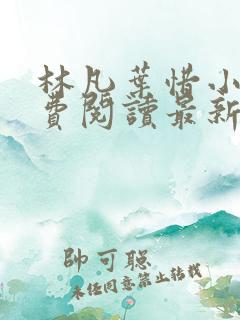 林凡葉惜小
費閱讀最新
帥可聰
未经同意禁止转载